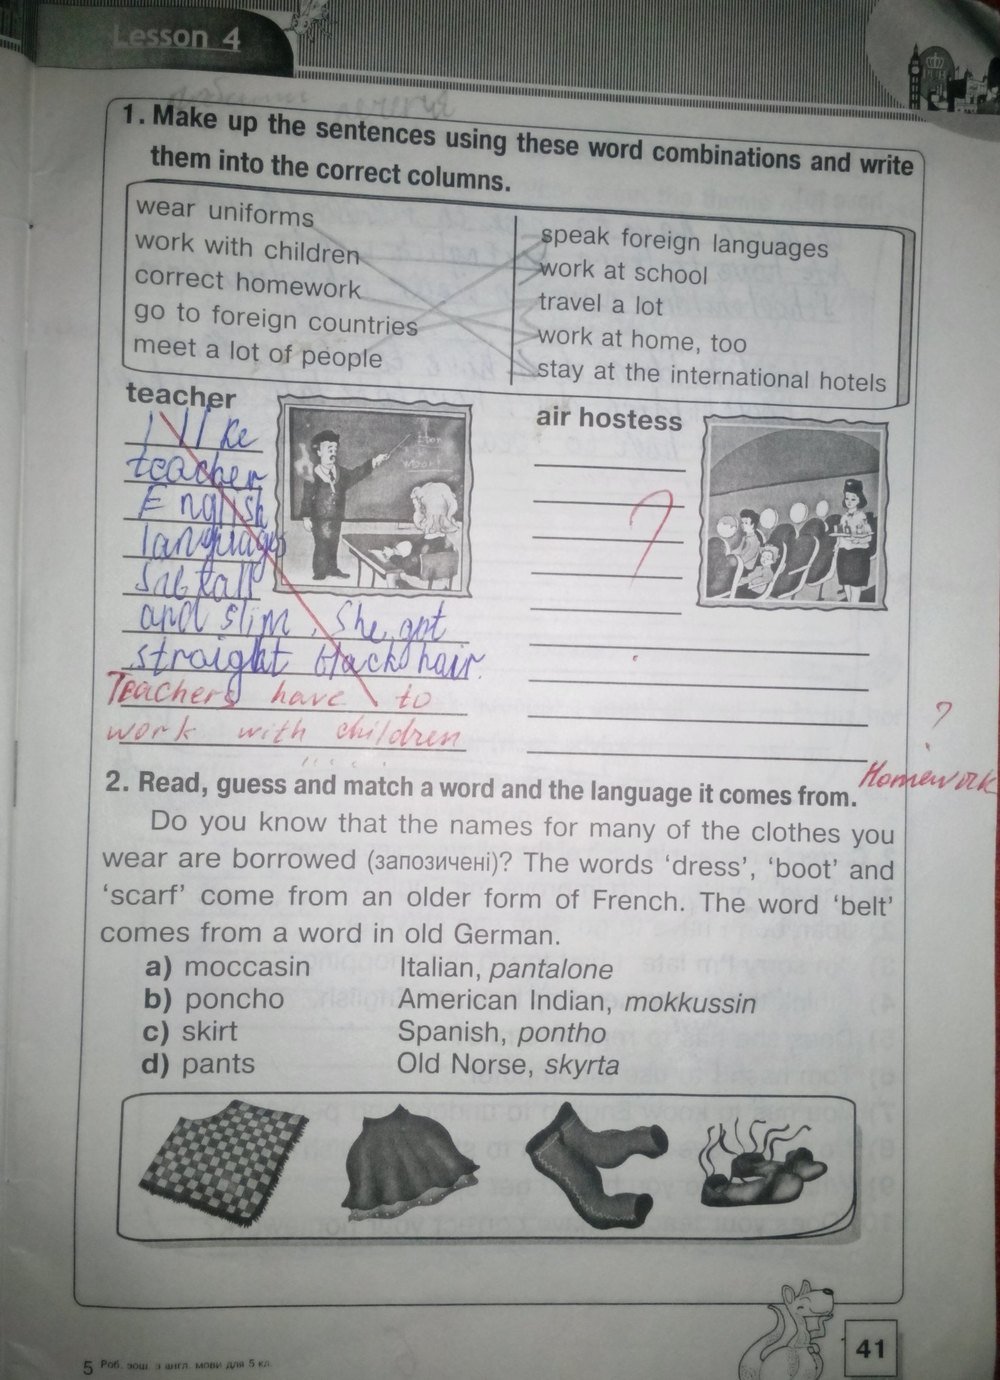 Lesson 4
1. Make up the sentences using these word combinations and write
them into the correct columns.
wear uniforms
work with children
correct homework
go to foreign countries
meet a lot of people
speak foreign languages
work at school
travel a lot
work at home, too
stay at the international hotels
teacher
I like
teacher
English
languages
She tall
and slim. She got
straight black hair.
Teachers have to
work with children
air hostess
?
?
Homework
2. Read, guess and match a word and the language it comes from.
Do you know that the names for many of the clothes you
wear are borrowed (запозичені)? The words ‘dress’, ‘boot’ and
‘scarf’ come from an older form of French. The word ‘belt’
comes from a word in old German.
a) moccasin Italian, pantalone
b) poncho American Indian, mokkussin
c) skirt Spanish, pontho
d) pants Old Norse, skyrta
5 Роб. зош. з англ. мови для 5 кл.
41